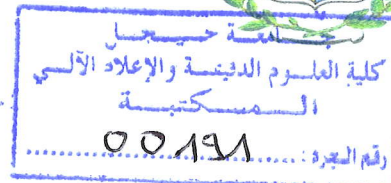 جامعة جيجل
كلية العلوم الدقيقة والإعلام الآلي
المكتبة
رقم الجرد: 00191